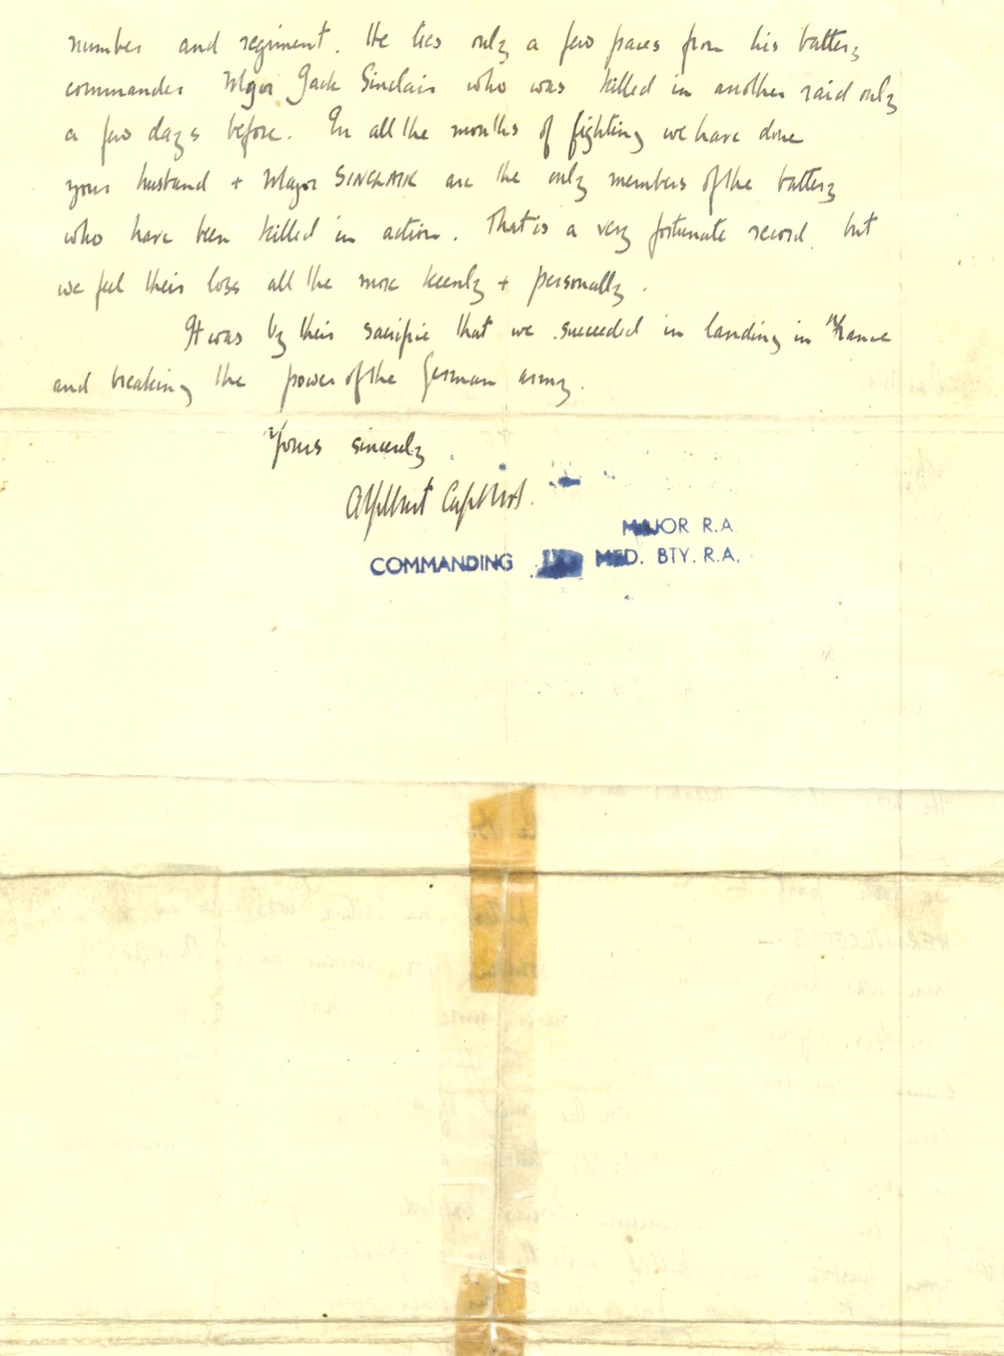 number and regiment. He lies only a few paces from his battery
commander Major Jack Sinclair who was killed in another raid only
a few days before. In all the months of fighting we have done
your husband + Major SINCLAIR are the only members of the battery
who have been killed in action. That is a very fortunate record, but
we feel their loss all the more keenly + personally.
It was by their sacrifice that we succeeded in landing in France
and breaking the power of the German army.
Yours sincerely
MAJOR R.A
COMMANDING MED. BTY. R.A.